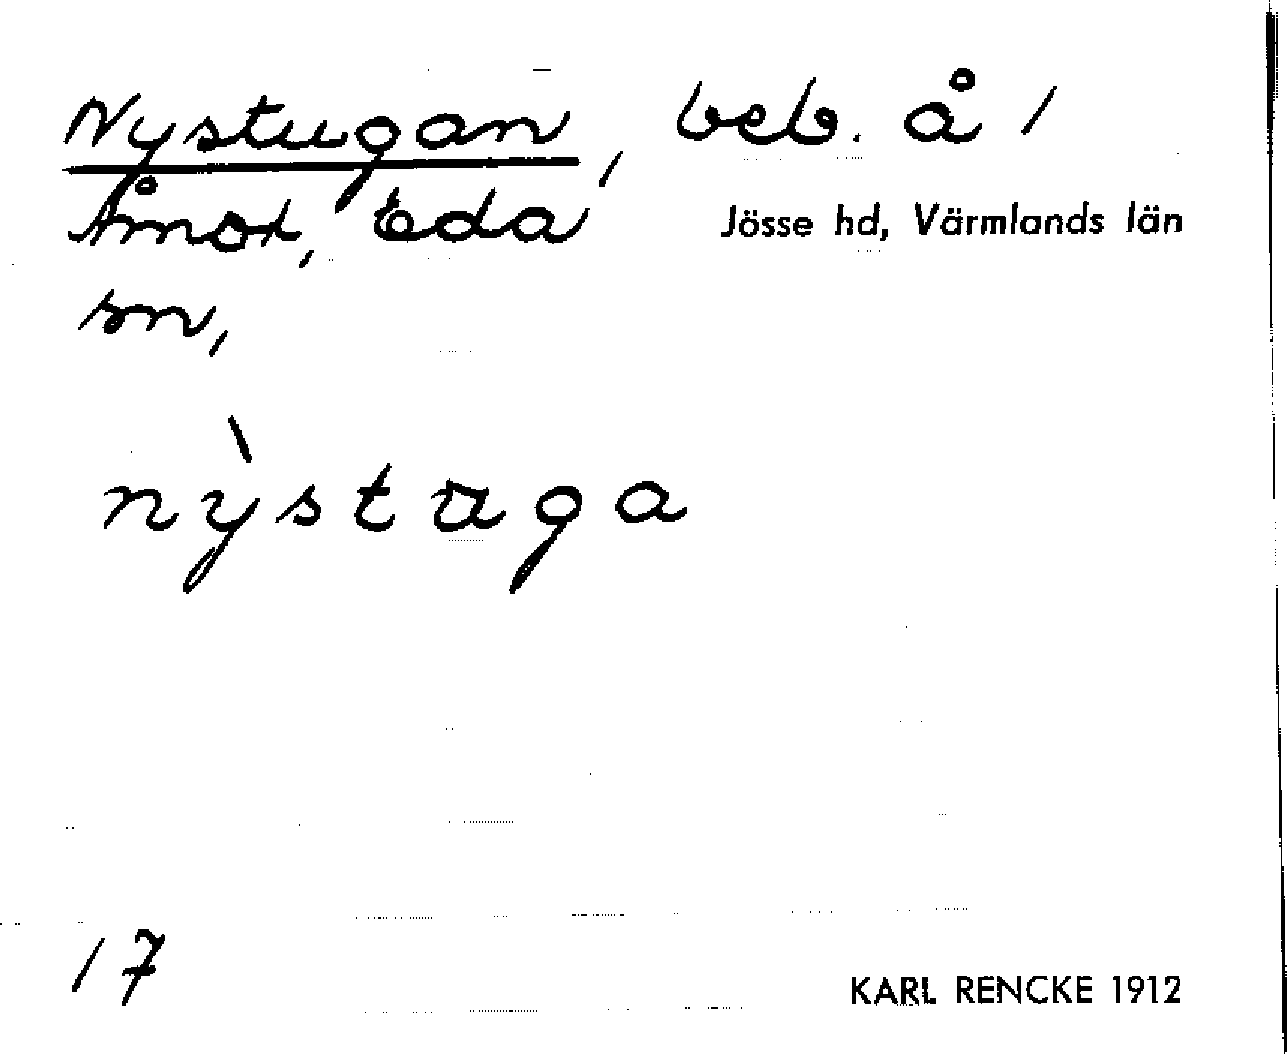 Nystugan, beb. å 1
Åmot, Eda
Jösse hd, Värmlands län
sn,
nỳstuga
17
KARL RENCKE 1912